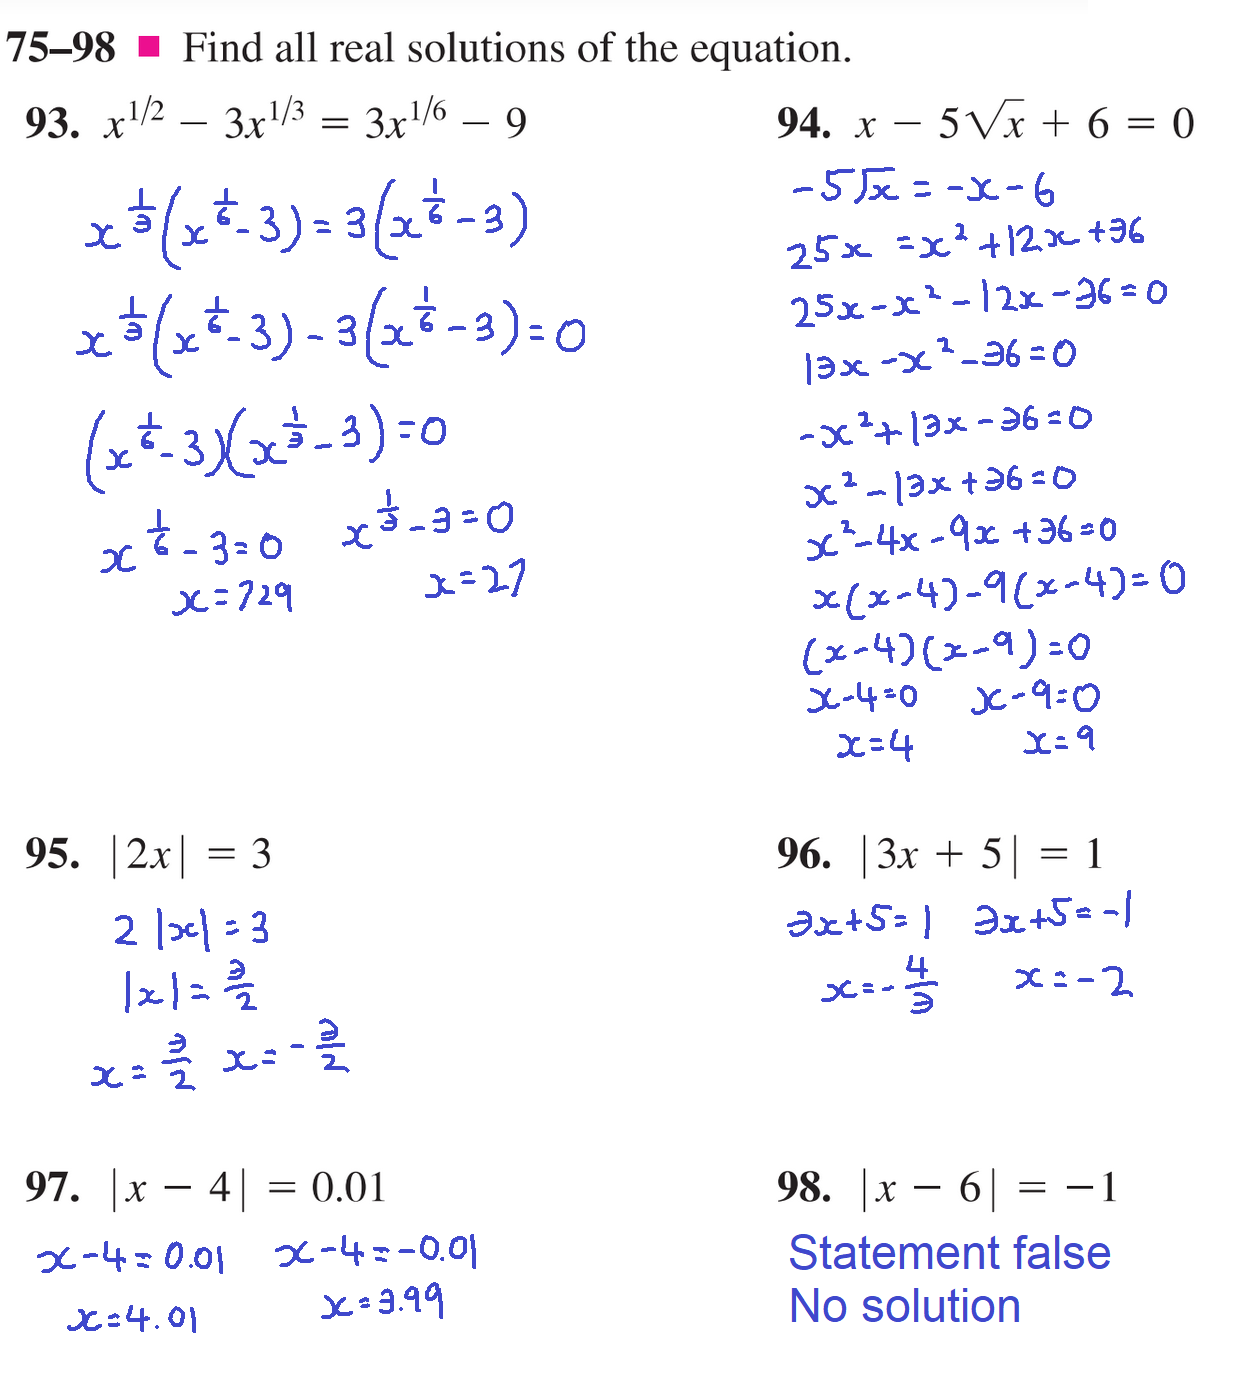 75–98 ■ Find all real solutions of the equation.
93. x^{1/2} − 3x^{1/3} = 3x^{1/6} − 9
x^{1/3}(x^{1/6} - 3) = 3(x^{1/6} - 3)
x^{1/3}(x^{1/6} - 3) - 3(x^{1/6} - 3) = 0
(x^{1/6} - 3)(x^{1/3} - 3) = 0
x^{1/6} - 3 = 0 x^{1/3} - 3 = 0
x = 729 x = 27
94. x − 5√x + 6 = 0
-5√x = -x - 6
25x = x² + 12x + 36
25x - x² - 12x - 36 = 0
13x - x² - 36 = 0
-x² + 13x - 36 = 0
x² - 13x + 36 = 0
x² - 4x - 9x + 36 = 0
x(x - 4) - 9(x - 4) = 0
(x - 4)(x - 9) = 0
x - 4 = 0 x - 9 = 0
x = 4 x = 9
95. |2x| = 3
2|x| = 3
|x| = 3/2
x = 3/2 x = -3/2
96. |3x + 5| = 1
3x + 5 = 1 3x + 5 = -1
x = -4/3 x = -2
97. |x − 4| = 0.01
x - 4 = 0.01 x - 4 = -0.01
x = 4.01 x = 3.99
98. |x − 6| = −1
Statement false
No solution